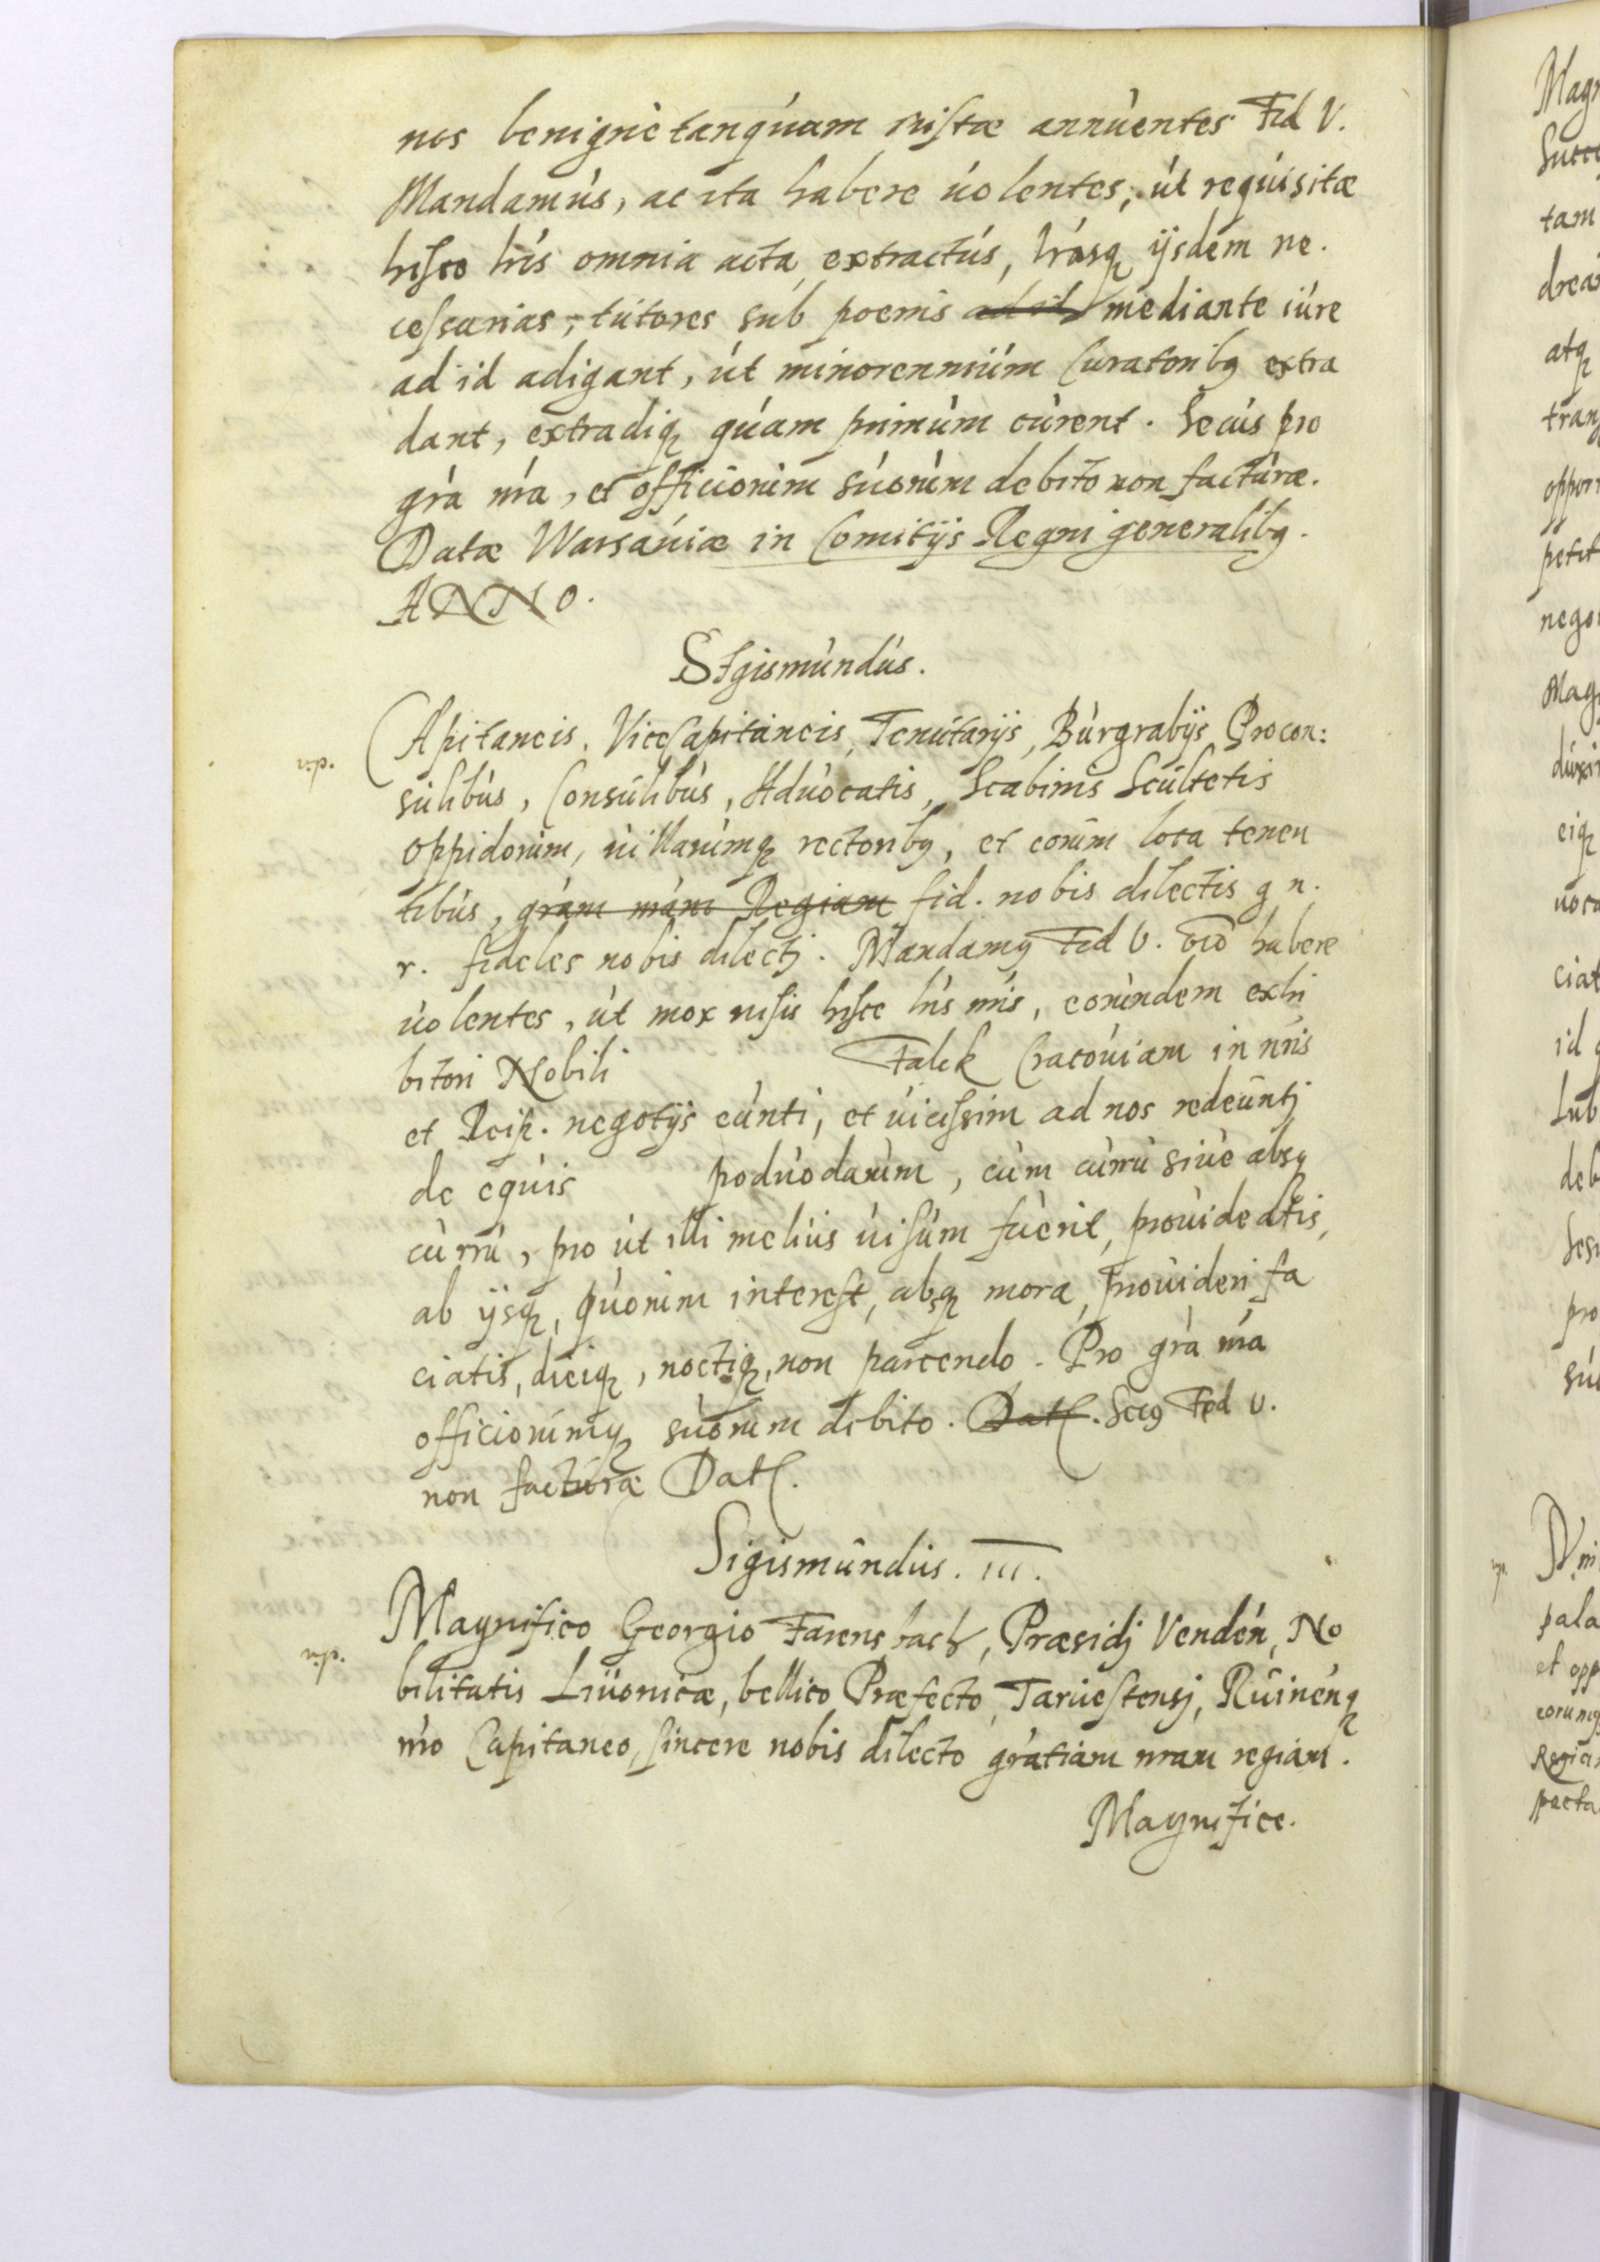 nos benignè tanquam iustæ annúentes Fid V.
Mandamús, ac ita habere úolentes, út requisitæ
hisce lrís omnia acta extractús, lrásq ijsdem ne.
cessarias, tútores súb poenis ad id mediante iúre
ad id adigant, út minorenniúm Curatoribq extra
dant, extradiq quám primúm cúrent. Secús pro
grà nrà, et officiorúm súorúm debito non factúræ.
Datæ Warsáuiæ in Comitijs Regni generalibq.
ANNO.
SIgismúndús.
CApitaneis, ViceCapitaneis, Tenútarijs, Búrgrabijs Procon:
súlibús, Consúlibús, Aduócatis, Scabinis Scúltetis
oppidorúm, úillarúmq rectoribq, et eorúm loca tenen
tibús, grám nrám Regiam fid. nobis dilectis g n.
r. fideles nobis dilectj. Mandamq Fid V. õio habere
úolentes, út mox uisis hisce lrís nrís, eorúndem exhi
bitori Nobili Falek Cracóuiam in nrís
et Reip. negotijs eúnti, et úicissim ad nos redeúntj
de equis poduódarúm, cúm cúrrú siúe absq
cúrrú, pro út illi meliús úisúm fúerit, proúideatis,
ab ijsq, quorúm interest, absq mora, proúideri fa
ciatis, dieiq, noctiq, non parcendo. Pro grà nrà
officiorúmq súorúm debito. Dat. Secq Fid V.
non factúræ Dat.
Sigismúndús. III.
Magnifico Georgio Farensbach, Præsidj Vendén, No
bilitatis Liúonicæ, bellico Præfecto, Tarúestensj, Rúinénq
nro Capitaneo, sincere nobis dilecto grátiam nram regiam.
Magnifice.